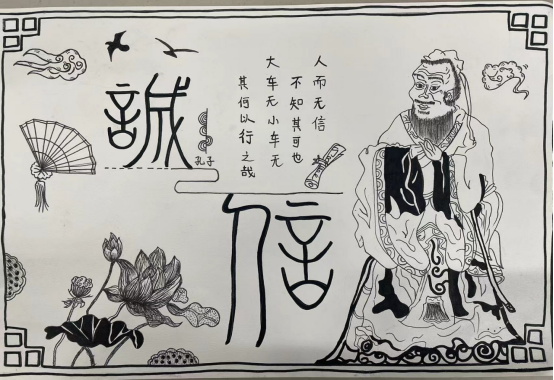 誠
信
人而无信
不知其可也
大车无小车无
其何以行之哉
孔子